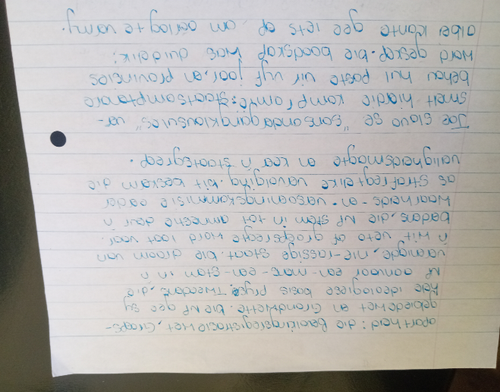 apartheid: die Bevolkingsregistrasie Wet, Groeps-
gebiede Wet en Grondwette. Die NP gee sy
hele ideologiese basis prys. Tweedens, die
NP aanvaar een-mens-een-stem in 'n
verenigde, nie-rassige staat. Die droom van
'n wit veto of groepsregte word laat vaar.
Derdens, die NP stem in tot amnestie deur 'n
Waarheids- en- Versoeningskommissie eerder
as strafregtelike vervolging. Dit beskerm die
veiligheidsmagte en keer 'n staatsgreep.
Joe Slovo se "sonsondergangklousules" ver-
smelt hierdie kompromie: staatsamptenare
behou hul poste vir vyf jaar, en provinsies
word geskep. Die boodskap was duidelik:
albei kante gee iets op om oorlog te vermy.